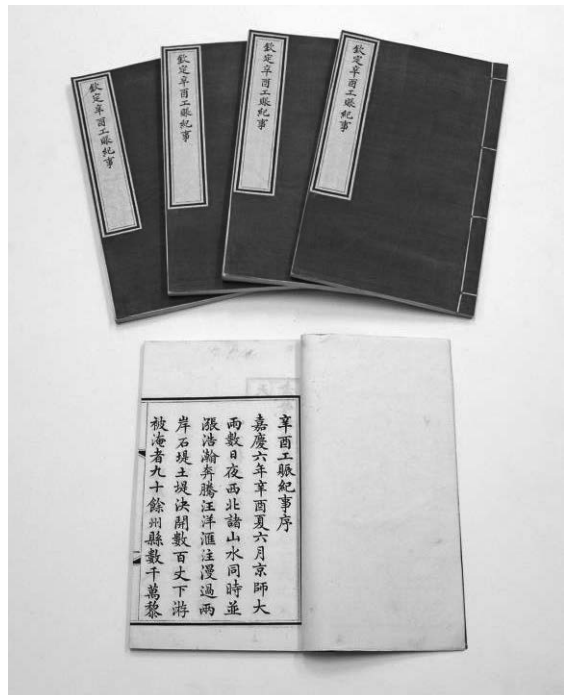 欽定辛酉工賑紀事
欽定辛酉工賑紀事
欽定辛酉工賑紀事
欽定辛酉工賑紀事
辛酉工賑紀事序
嘉慶六年辛酉夏六月京師大
雨數日夜西北諸山水同時並
漲浩瀚奔騰汪洋滙注漫過兩
岸石堤土堤決開數百丈下游
被淹者九十餘州縣數千萬黎